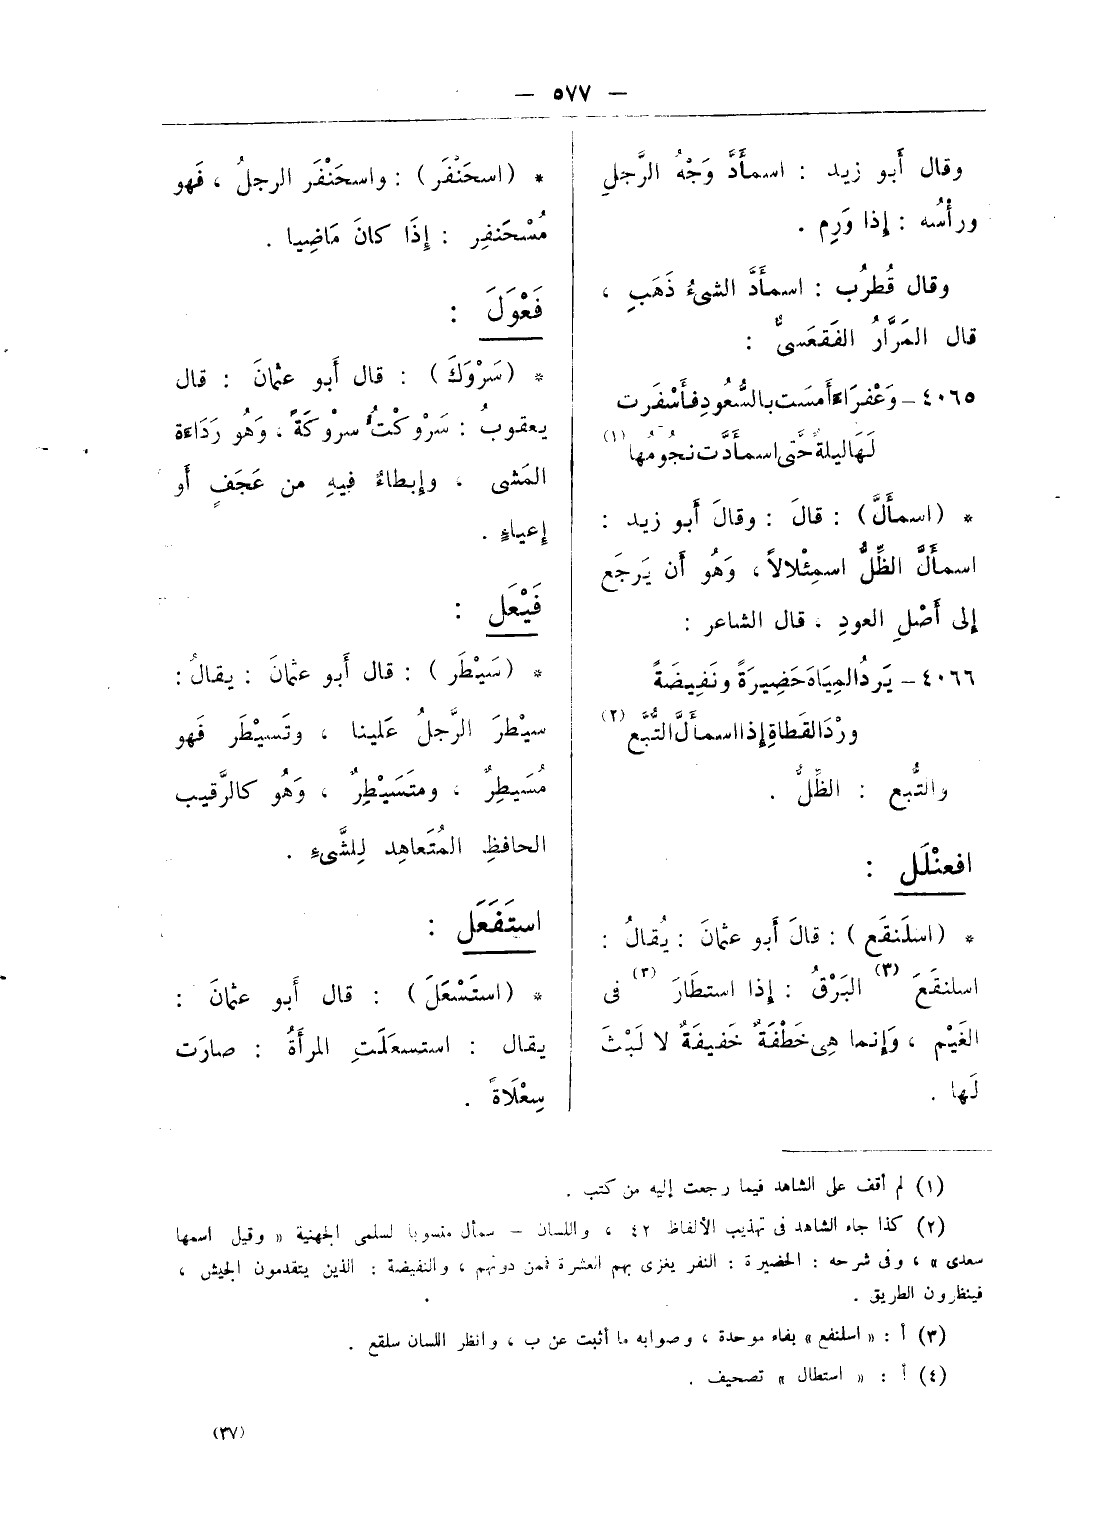 — ٥٧٧ —
وقال أَبو زيد : اسمأَدَّ وَجْهُ الرَّجلِ
ورأْسُه : إِذا وَرِم .
وقال قُطرُب : اسمأَدَّ الشىءُ ذَهَب ،
قال المَرَّارُ الفَقعَسىُّ :
٤٠٦٥ – وَعْفرَاءَ أَمسَت بالسُّعُودِ فأَسْفَرت
لَهَا ليلةً حَّتى اسمأَدَّت نجُومُها (١)
* (اسمأَلَّ) : قالَ : وقالَ أَبو زيد :
اسمأَلَّ الظِّلُّ اسمِئْلالاً ، وَهُو أَن يَرجَع
إِلى أَصْلِ العودِ ، قال الشاعر :
٤٠٦٦ – يَردُ المِيَاهَ حَضِيرَةً ونَفِيضَةً
ورْدَ القَطاةِ إِذا اسمأَلَّ التُّبَّع (٢)
والتُّبع : الظِّلُّ .
افعنْلَل :
* (اسلَنقَع) : قالَ أَبو عثمانَ : يُقالُ :
اسلنقَعَ (٣) البَرْقُ : إِذا استطَارَ (٣) فى
الغَيْم ، وَإِنما هِى خَطْفَةٌ خَفيفَةٌ لا لَبْثَ
لَها .
* (اسحَنْفَر) : واسحَنْفَر الرجلُ ، فَهو
مُسْحَنفِر : إِذَا كانَ مَاضِيا .
فَعْوَلَ :
* (سَرْوَكَ) : قال أَبو عثمانَ : قال
يعقوبُ : سَرْوكْتُ سرْوكَةً ، وَهُو رَدَاءَة
المَشى ، وإِبطاءٌ فيهِ من عَجَفٍ أَو
إِعياءٍ .
فَيْعَل :
* (سَيْطَر) : قال أَبو عثمانَ : يقالُ :
سيْطرَ الرَّجلُ عَلينا ، وتَسيْطَر فَهو
مُسَيطِرٌ ، ومتَسَيْطِرٌ ، وَهُو كالرَّقيب
الحافظِ المُتَعاهِد لِلشَّىءِ .
استَفَعَل :
* (استَسْعَلَ) : قال أَبو عثمانَ :
يقال : استسعَلَتِ المرأَةُ : صارَت
سِعْلَاةً .
(١) لم أقف على الشاهد فيما رجعت إليه من كتب .
(٢) كذا جاء الشاهد فى تهذيب الألفاظ ٤٢ ، واللسان – سمأل منسوبا لسلمى الجهنية « وقيل اسمها
سعدى » ، وفى شرحه : الحضيرة : النفر يغزى بهم العشرة فمن دونهم ، والنفيضة : الذين يتقدمون الجيش ،
فينظرون الطريق .
(٣) أ : « اسلنفع » بفاء موحدة ، وصوابه ما أثبت عن ب ، وانظر اللسان سلقع .
(٤) أ : « استطال » تصحيف .
(٣٧)